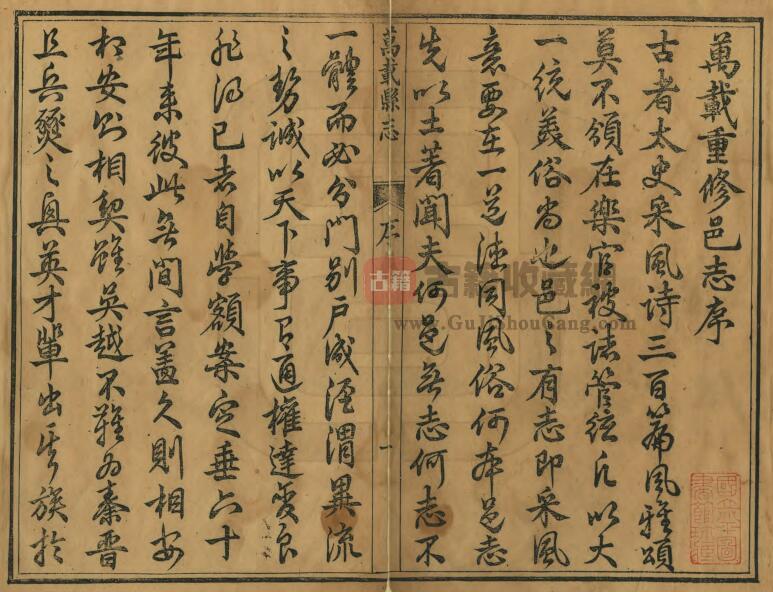 萬載重修邑志序
古者太史采風詩三百篇風雅頌
莫不領在樂官被諸管絃凡以大
一統美俗尚也邑之有志即采風
意要在一道德同風俗何本邑志
先以土著聞夫何邑無志何志不
萬載縣志
序
一
一體而必分門別戶涇渭異流
之勢誠以天下事有通權達變良
非得已者自學額案定垂六十
年來彼此無間言蓋久則相安
相安則相契雖吳越不難為秦晉
且兵燹之英才輩出族於
古籍
古籍收藏網
www.GuJiShouCang.com